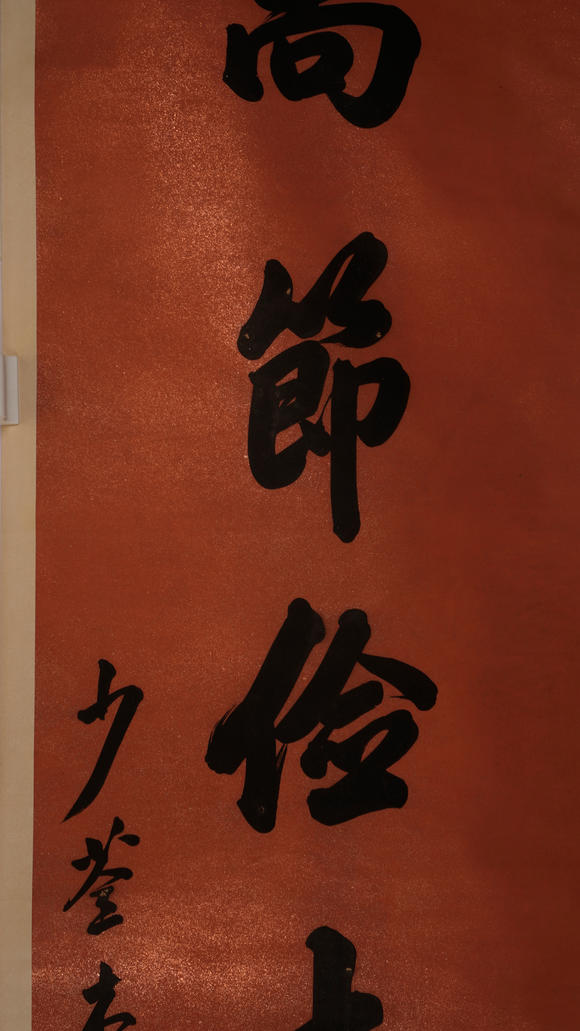 尚節儉
少荃